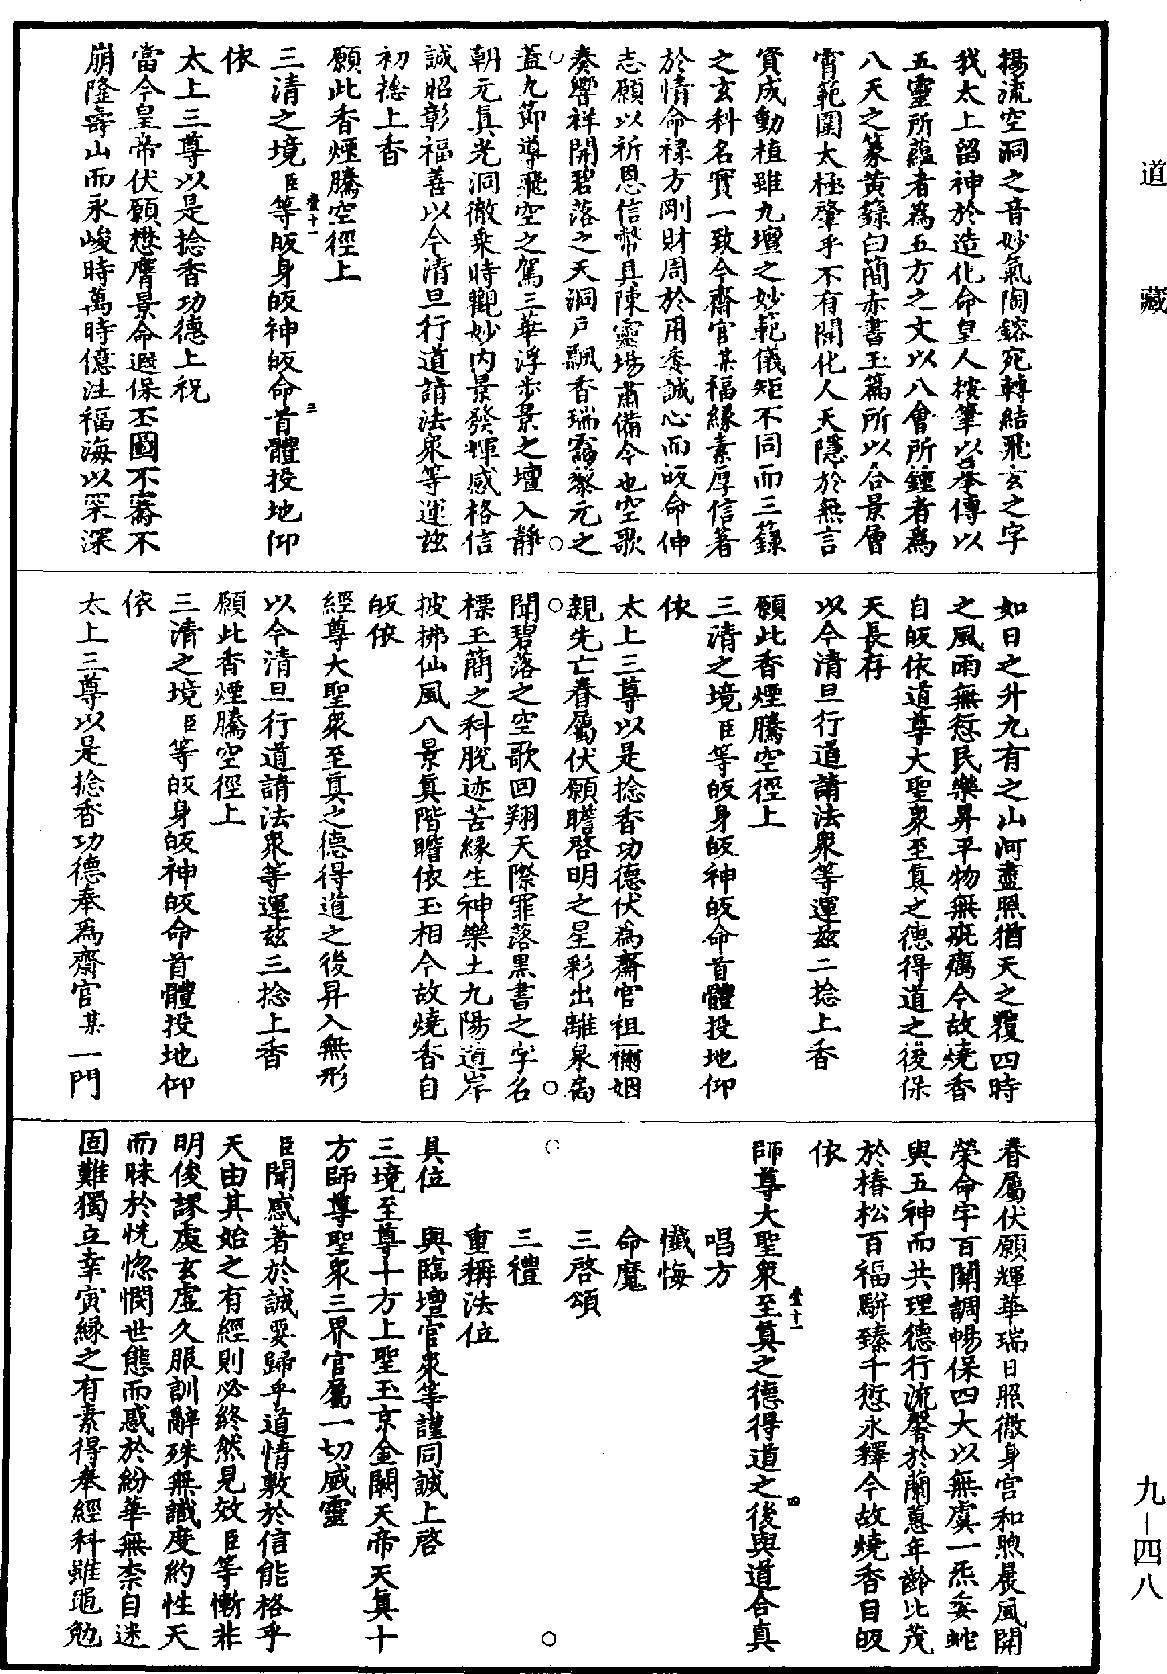 道藏
揚流空洞之音妙氣陶鎔宛轉結飛玄之字
我太上留神於造化命皇人按筆以垂傳以
五靈所蘊者為五方之文以八會所鍾者為
八天之篆黃籙白簡赤書玉篇所以合景層
霄範圍太極肇乎不有開化人天隱於無言
資成動植雖九壇之妙範儀矩不同而三籙
之玄科名實一致今齋官某福緣素厚信著
於情命祿方剛財周於用委誠心而皈命伸
志願以祈恩信幣具陳靈場肅備今也空歌
奏響祥開碧落之天洞戶飄香瑞靄黎元之
蓋九節導飛空之駕三華浮步景之壇入靜
朝元真光洞徹乘時觀妙內景發輝感格信
誠昭彰福善以今清旦行道請法眾等運茲
初捻上香
願此香煙騰空徑上
三清之境臣等皈身皈神皈命首體投地仰
依
太上三尊以是捻香功德上祝
當今皇帝伏願懋膺景命遐保丕圖不騫不
崩隆壽山而永峻時萬時億注福海以罙深
如日之升九有之山河盡照猶天之覆四時
之風雨無愆民樂昇平物無疵癘今故燒香
自皈依道尊大聖眾至真之德得道之後保
天長存
以今清旦行道請法眾等運茲二捻上香
願此香煙騰空徑上
三清之境臣等皈身皈神皈命首體投地仰
依
太上三尊以是捻香功德伏為齋官祖禰姻
親先亡眷屬伏願瞻啓明之星彩出離泉扃
聞碧落之空歌回翔天際罪落黑書之字名
標玉簡之科脫迹苦緣生神樂土九陽道岸
披拂仙風八景真階瞻依玉相今故燒香自
皈依
經尊大聖眾至真之德得道之後昇入無形
以今清旦行道請法眾等運茲三捻上香
願此香煙騰空徑上
三清之境臣等皈身皈神皈命首體投地仰
依
太上三尊以是捻香功德奉為齋官某一門
眷屬伏願輝華瑞日照徹身宮和煦晨風開
榮命宇百關調暢保四大以無虞一炁委蛇
與五神而共理德行流馨於蘭蕙年齡比茂
於椿松百福駢臻千愆永釋今故燒香自皈
依
師尊大聖眾至真之德得道之後與道合真
唱方
懺悔
命魔
三啓頌
三禮
重稱法位
具位　與臨壇官眾等謹同誠上啓
三境至尊十方上聖玉京金闕天帝天真十
方師尊聖眾三界官屬一切威靈
臣聞感著於誠要歸乎道情敷於信能格乎
天由其始之有經則必終然見效臣等慚非
明俊謬處玄虛久服訓辭殊無識度約性天
而昧於恍惚憫世態而惑於紛華無柰自迷
固難獨立幸寅緣之有素得奉經科雖黽勉
壹十一
三
壹十一
四
九—四八